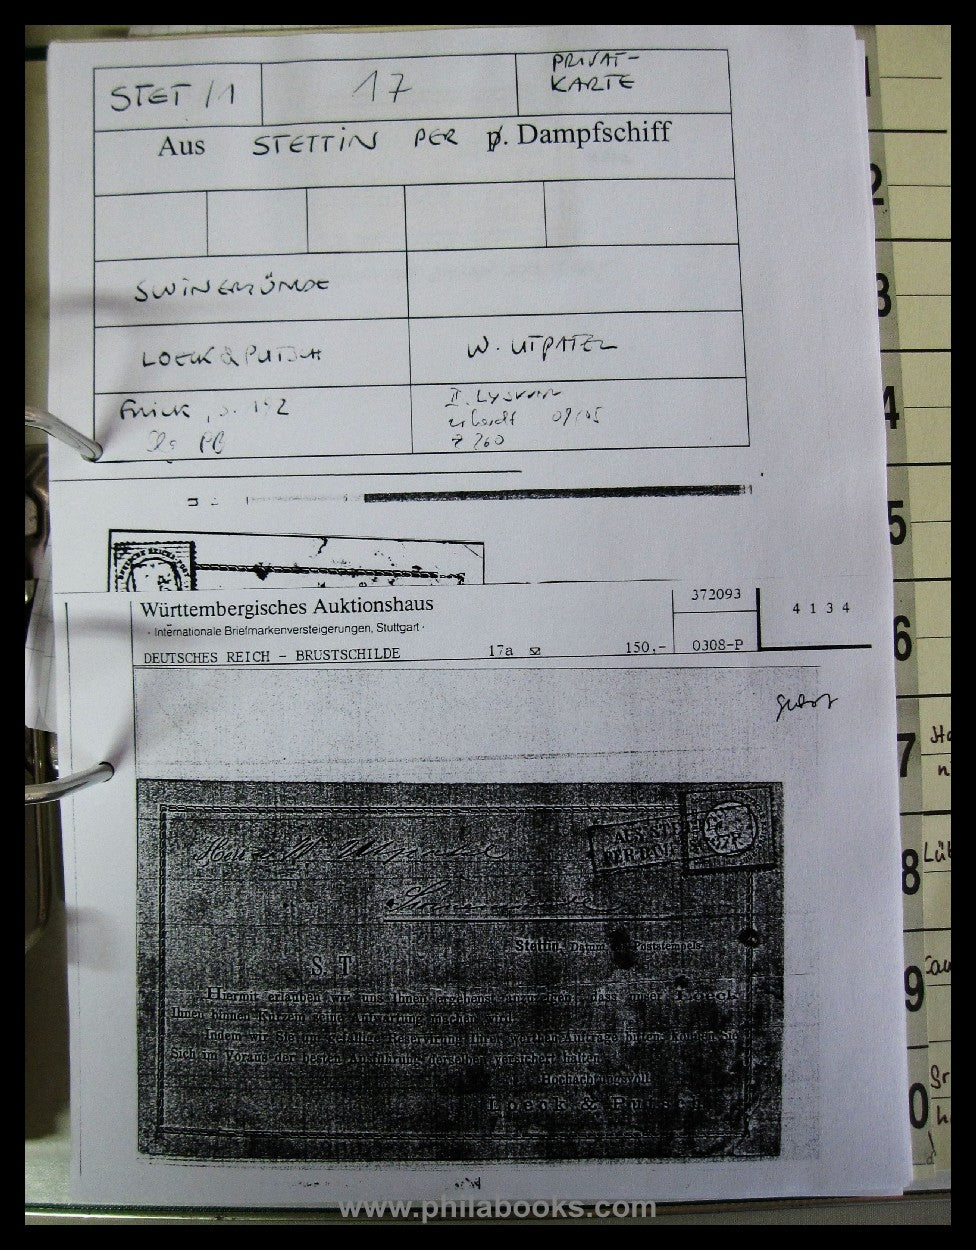 STET/1 17 PRIVAT-
KARTE
Aus STETTIN PER p. Dampfschiff
SWINEMÜNDE
LOECK & PUTSCH W. UTPATEL
Frick, S. 192
09/05
7 260
Württembergisches Auktionshaus
· Internationale Briefmarkenversteigerungen, Stuttgart ·
372093
4134
DEUTSCHES REICH - BRUSTSCHILDE 17a 150,- 0308-P
AUS STETTIN
PER DAMPF
Stettin, Datum des Poststempels.
S T
Hiermit erlauben wir uns Ihnen ergebenst anzuzeigen, dass unser Loeck
Ihnen binnen Kurzem seine Aufwartung machen wird.
Indem wir Sie um gefällige Reservirung Ihrer werthen Aufträge bitten, können Sie
Sich im Voraus der besten Ausführung derselben versichert halten.
Hochachtungsvoll
Loeck & Putsch
1
2
3
4
5
6
7
8
9
0
Lüb
www.philabooks.com